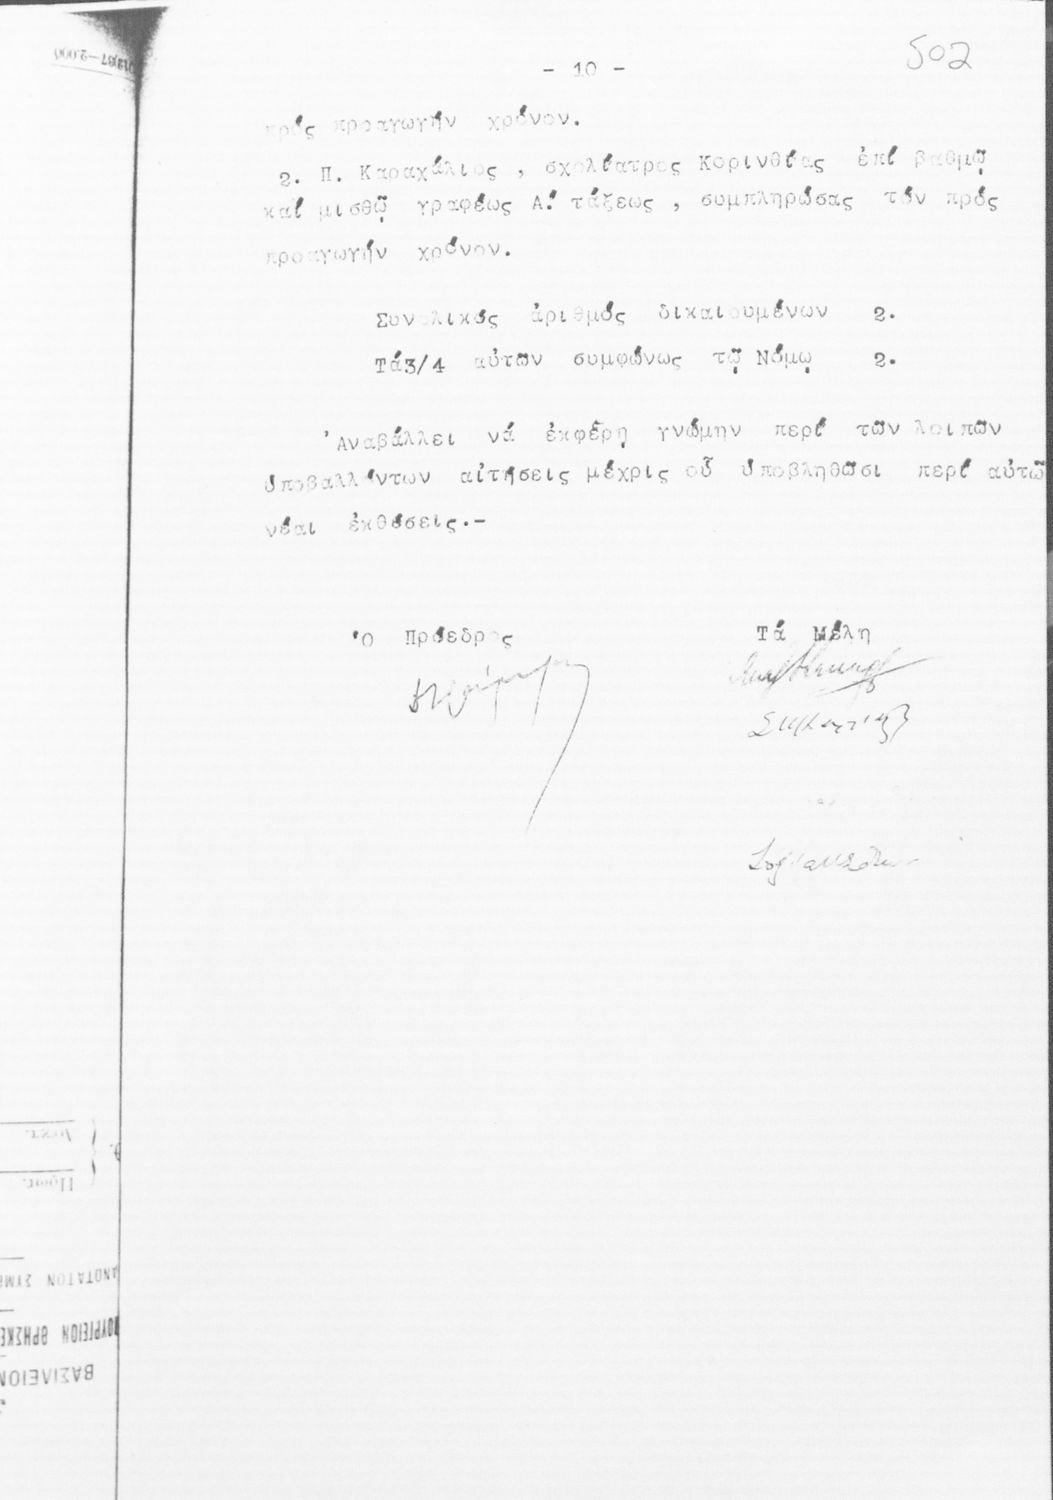 502
- 10 -
πρός προαγωγήν χρόνον.
2. Π. Καραχάλιος , σχολίατρος Κορινθίας ἐπί βαθμῷ
καί μισθῷ γραφέως Α! τάξεως , συμπληρώσας τόν πρός
προαγωγήν χρόνον.
Συνολικός ἀριθμός δικαιουμένων 2.
Τά3/4 αὐτῶν συμφώνως τῷ Νόμῳ 2.
'Αναβάλλει νά ἐκφέρῃ γνώμην περί τῶν λοιπῶν
ὑποβαλλόντων αἰτήσεις μέχρις οὗ ὑποβληθῶσι περί αὐτῶ
νέαι ἐκθέσεις.-
'Ο Πρόεδρος Τά Μέλη
ΒΑΣΙΛΕΙΟΝ
ΟΥΡΓΕΙΟΝ ΘΡΗΣΚΕ
ΑΝΩΤΑΤΟΝ ΣΥΜΒ
Πρωτ.
Διεκπ.